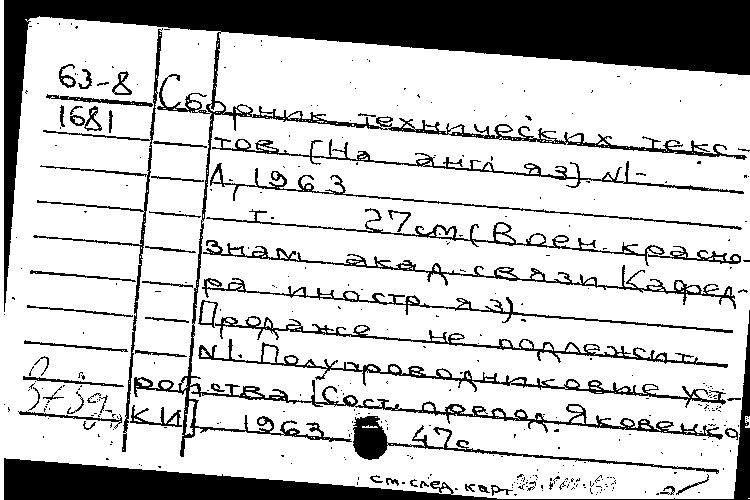 63-8
1681
Сборник технических текс-
тов. [На англ яз] N1-
Л., 1963
т. 27см (Воен. красно-
знам. акад. связи. Кафед-
ра иностр. яз).
Продаже не подлежит.
N1. Полупроводниковые уст-
ройства [Сост. препод. Яковенко
КИ], 1963 47с.
см. след. карт.